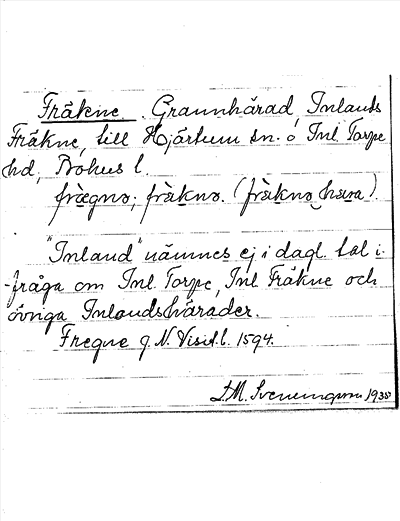 Fräkne. Grannhärad, Inlands
Fräkne, till Hjärtum sn. o Inl. Torpe
hd, Bohus l.
frægnə; fräknə. (fräknə hæra).
"Inland" nämnes ej i dagl. tal i-
-fråga om Inl. Torpe, Inl Fräkne och
övriga Inlandshärader.
Fregne g. N. Visit.l. 1594.
1935